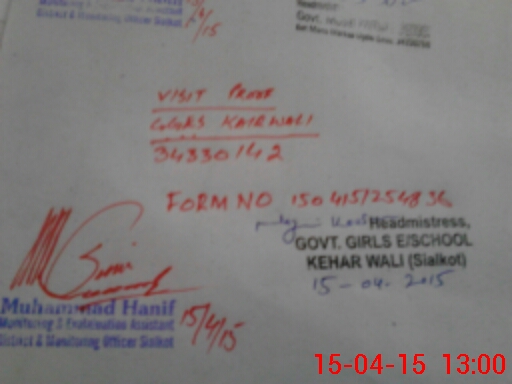 15
District & Monitoring Officer Sialkot
VISIT PROOF
GGES KAIRWALI
34330142
FORM NO 15041572548 36
Headmistress,
GOVT. GIRLS E/SCHOOL
KEHAR WALI (Sialkot)
15-04-2015
Muhammad Hanif
Monitoring & Evaluation Assistant
District & Monitoring Officer Sialkot
15/4/15
15-04-15 13:00